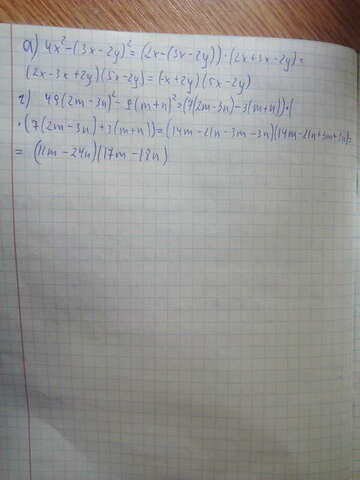 а) 4x²-(3x-2y)²=(2x-(3x-2y))·(2x+3x-2y)=
(2x-3x+2y)(5x-2y)=(-x+2y)(5x-2y)
г) 49(2m-3n)²-9(m+n)²=(7(2m-3n)-3(m+n))·(
·(7(2m-3n)+3(m+n))=(14m-21n-3m-3n)(14m-21n+3m+3n)=
=(11m-24n)(17m-18n)